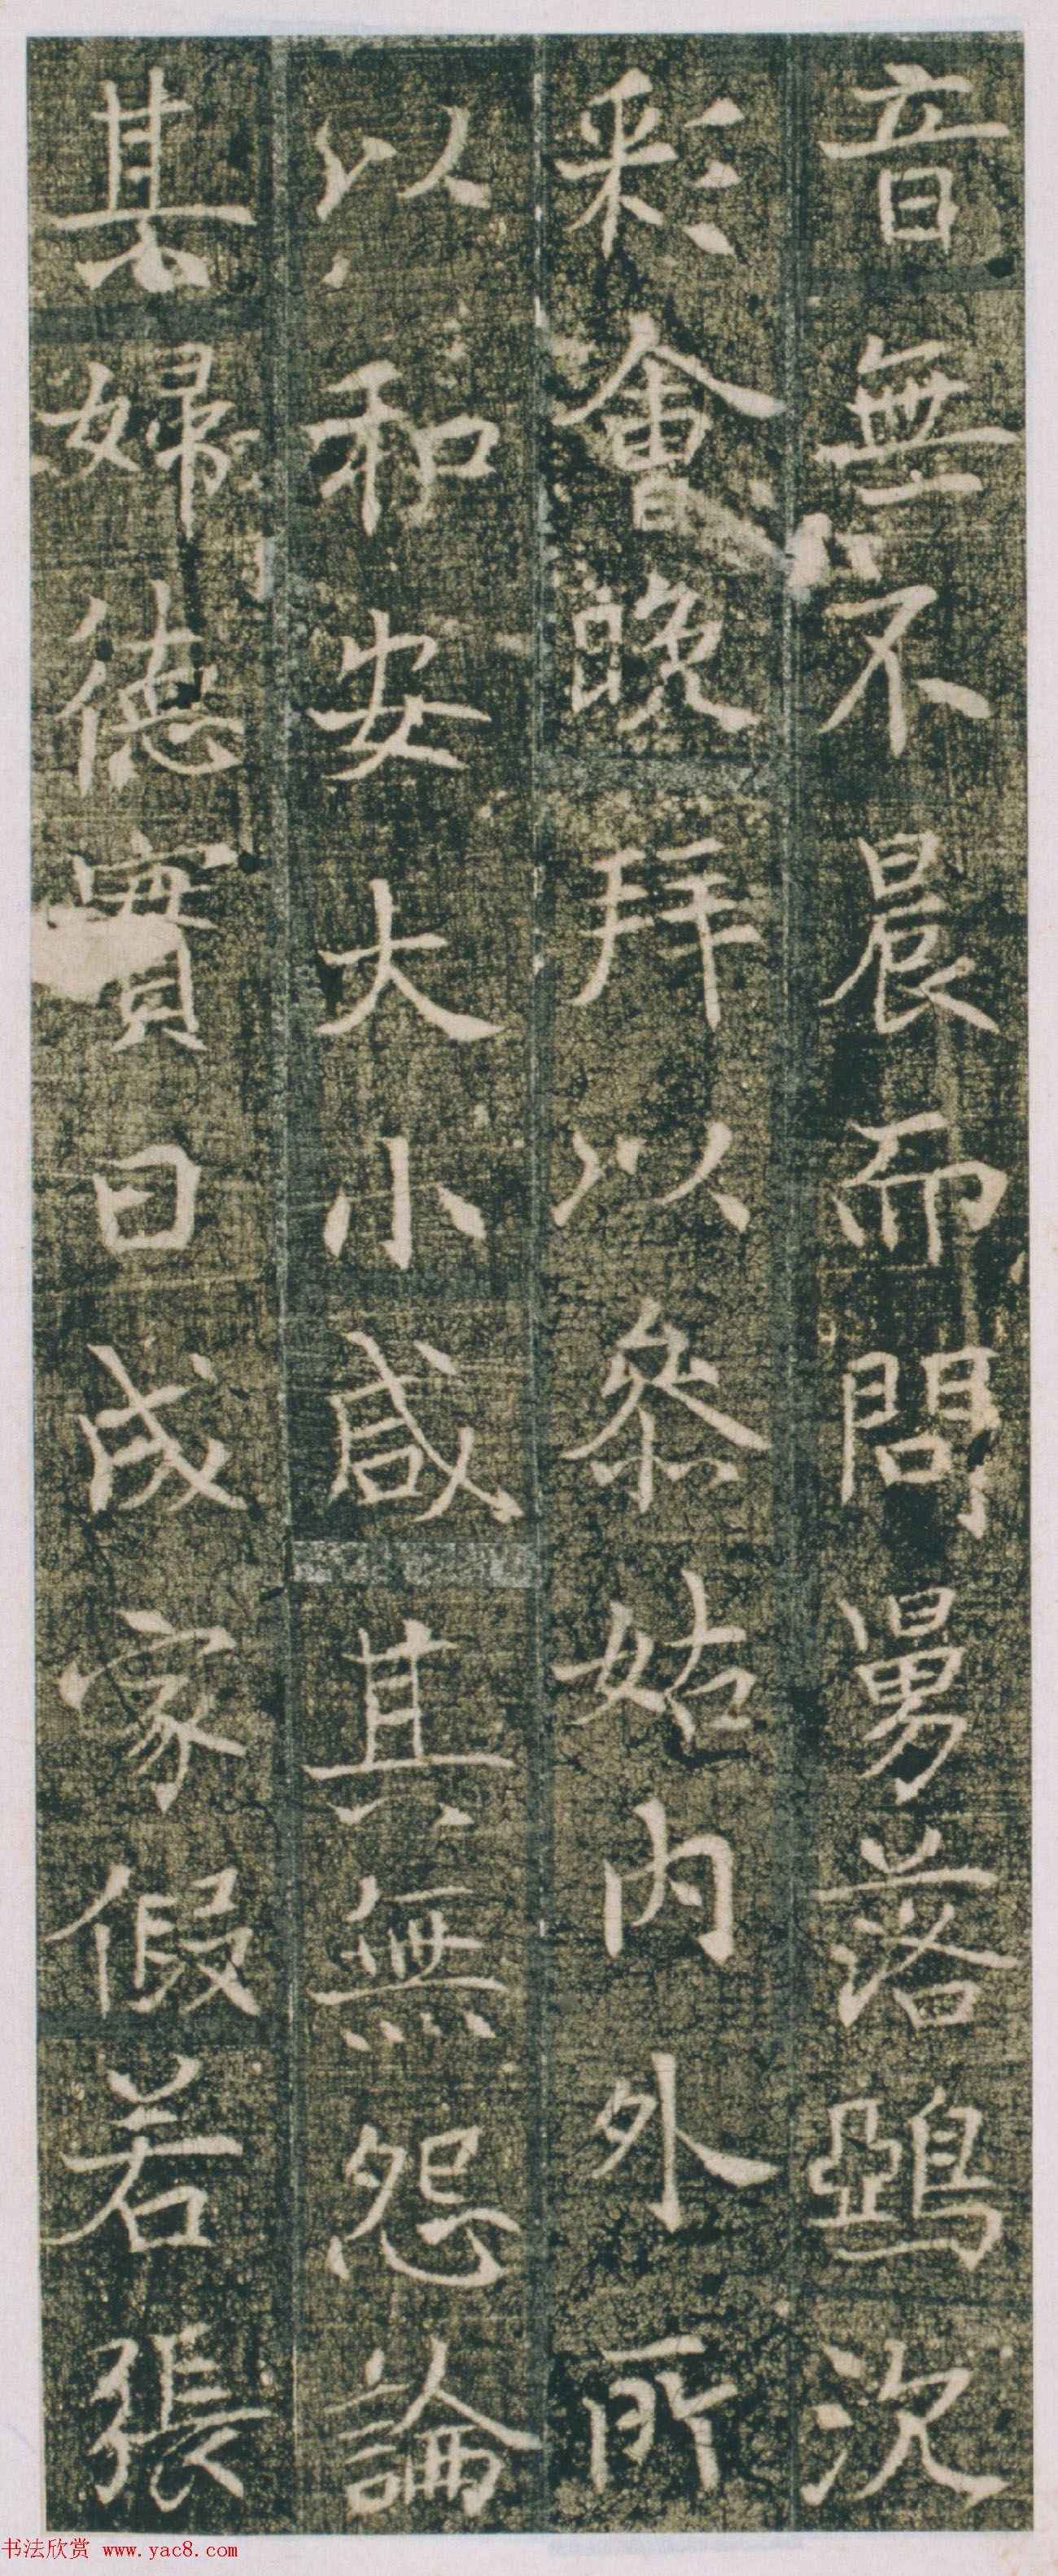 音無不晨而問舅落鵶次
彩會晚拜以參姑内外所
以和安大小咸其無怨論
其婦德實曰成家假若張
书法欣赏 www.yac8.com